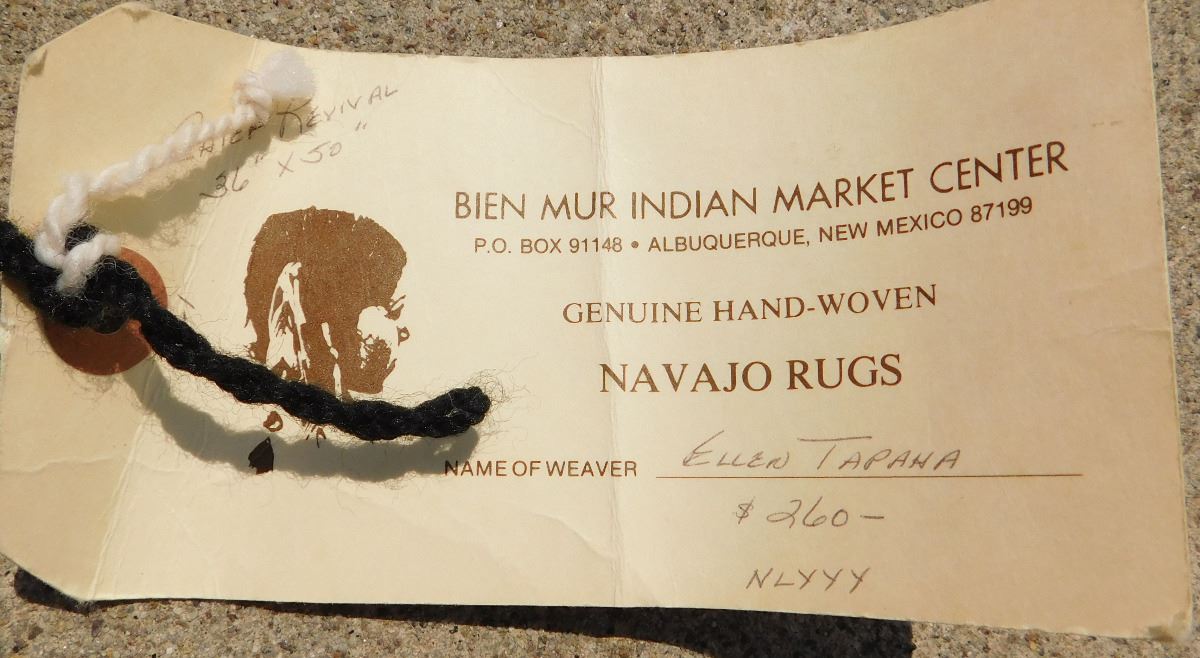 Chief Revival
36" x 50"
BIEN MUR INDIAN MARKET CENTER
P.O. BOX 91148 • ALBUQUERQUE, NEW MEXICO 87199
GENUINE HAND-WOVEN
NAVAJO RUGS
NAME OF WEAVER ELLEN TAPAHA
$ 260–
NLYYY